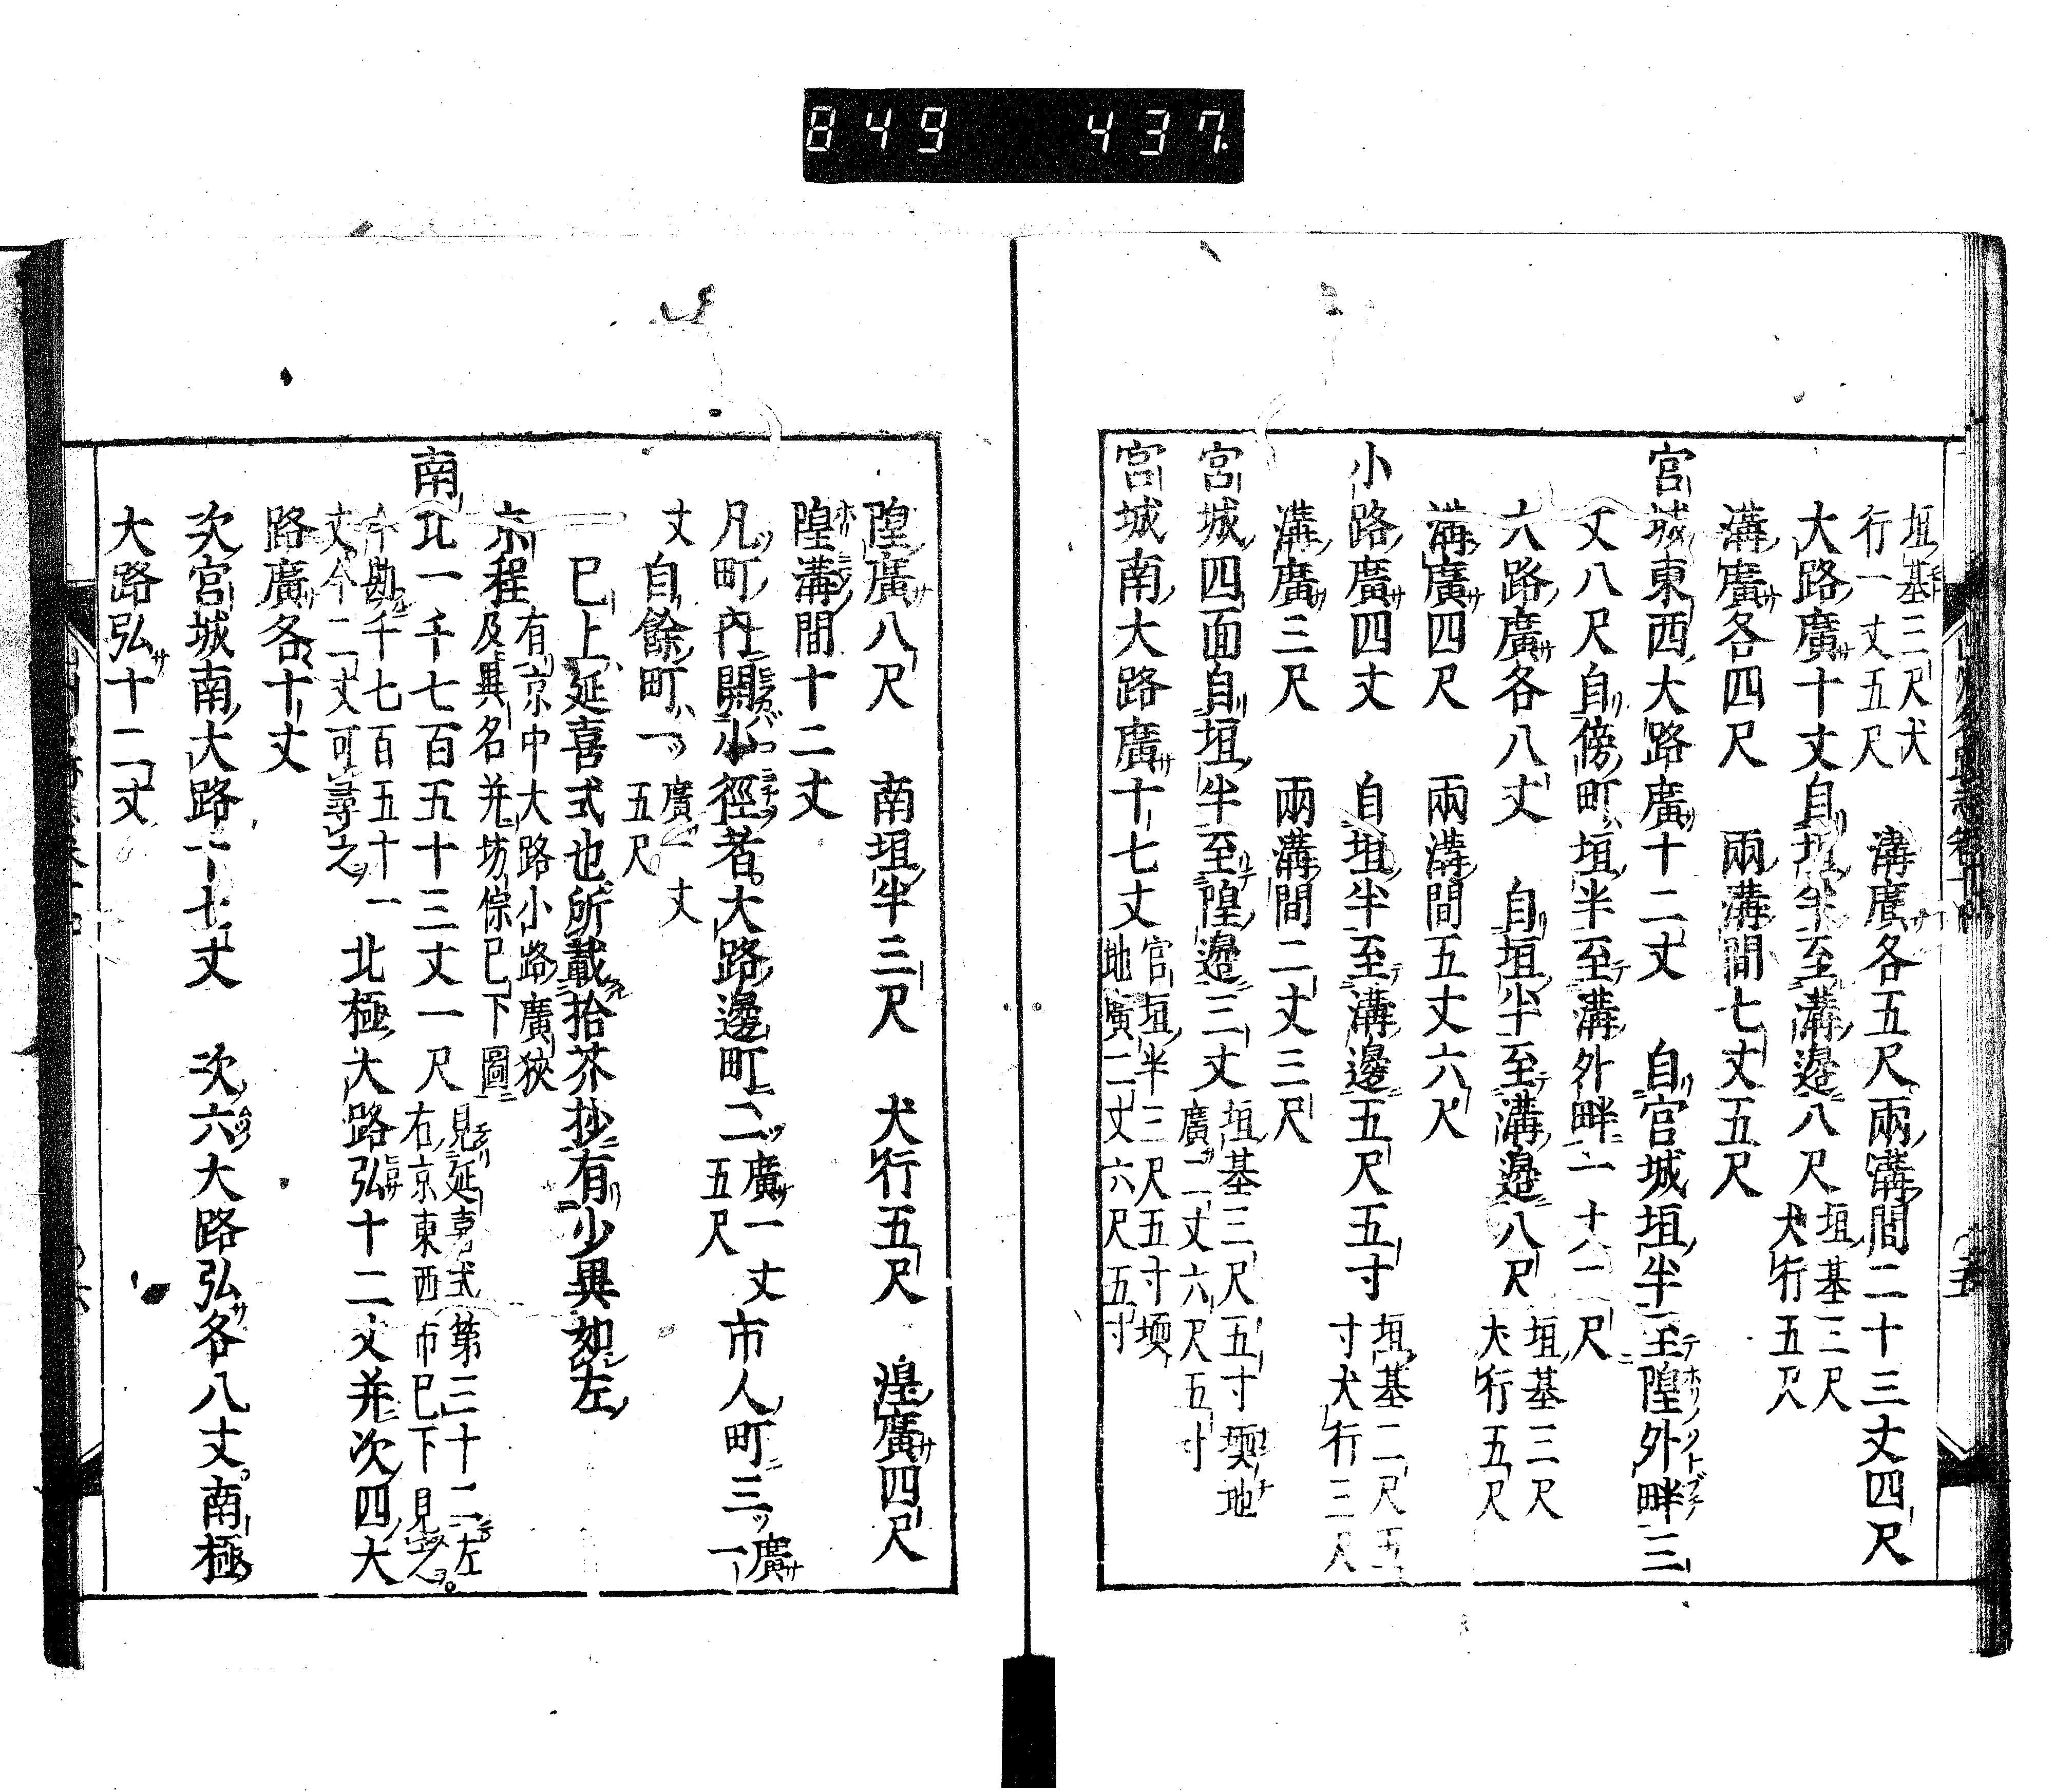 849 437
垣基三尺犬
行一丈五尺
溝廣各五尺兩溝間二十三丈四尺
大路廣十丈自垣半至溝邉八尺
垣基三尺
犬行五尺
溝廣各四尺 兩溝間七丈五尺
宮城東西大路廣十二丈 自宮城垣半至隍外畔三
丈八尺自傍町垣半至溝外畔一十二尺
大路廣各八丈 自垣半至溝邉八尺
垣基三尺
犬行五尺
溝廣四尺 兩溝間五丈六尺
小路廣四丈 自垣半至溝邊五尺五寸
垣基二尺五
寸犬行三尺
溝廣三尺 兩溝間二丈三尺
宮城四面自垣半至隍邉三丈
垣基三尺五寸壖地
廣二丈六尺五寸
宮城南大路廣十七丈
宮垣半三尺五寸壖
地廣二丈六尺五寸
隍廣八尺 南垣半三尺 犬行五尺 湟廣四尺
隍溝間十二丈
凡町內開小徑者大路邊町二
廣一丈
五尺
市人町三
廣一
丈
自餘町一
廣一丈
五尺
已上延喜式也所載拾芥抄有少異如左
京程
有京中大路小路廣狹
及異名并坊保已下圖
南北一千七百五十三丈一尺
見延喜式第三十二左
右京東西市已下見之
今勘千七百五十一
丈今二丈可尋之
北極大路弘十二丈并次四大
路廣各十丈
次宮城南大路十七丈 次六大路弘各八丈南極
大路弘十二丈